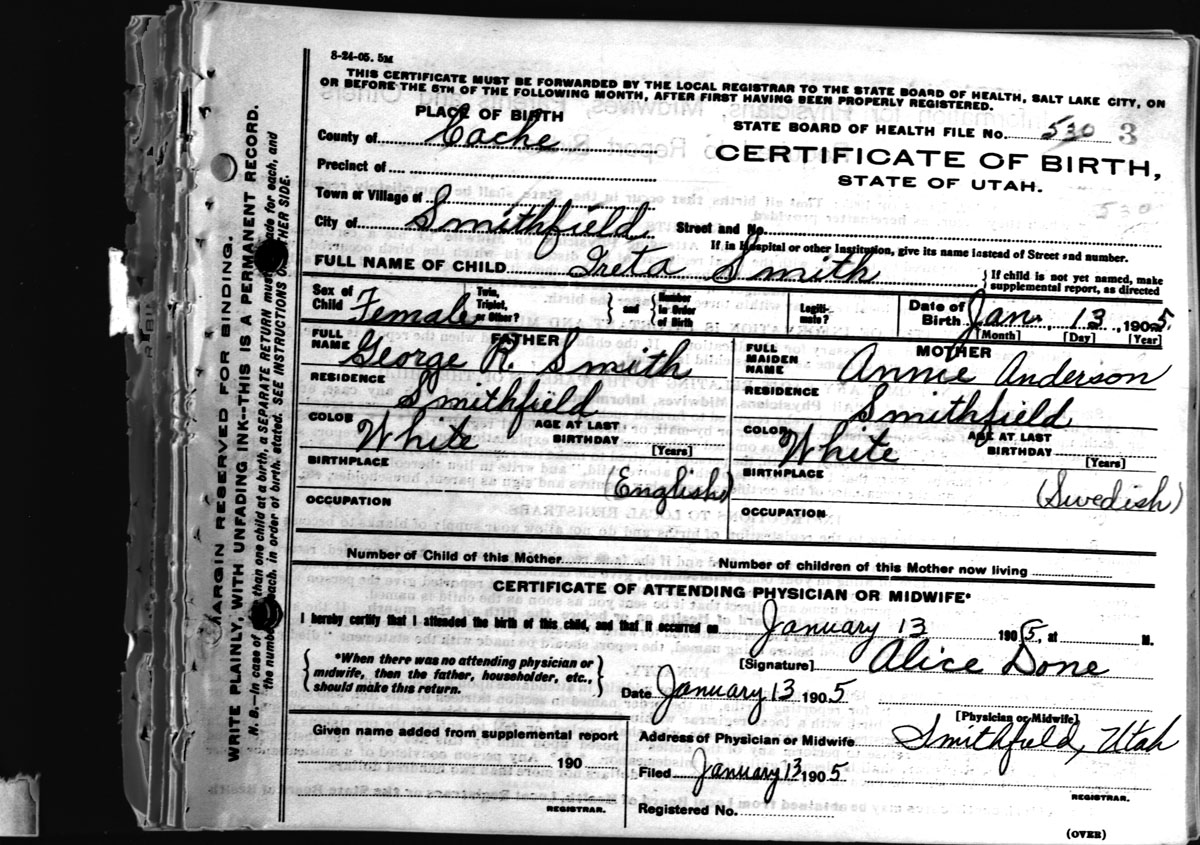 8-24-05. 5M
THIS CERTIFICATE MUST BE FORWARDED BY THE LOCAL REGISTRAR TO THE STATE BOARD OF HEALTH, SALT LAKE CITY, ON
OR BEFORE THE 5TH OF THE FOLLOWING MONTH, AFTER FIRST HAVING BEEN PROPERLY REGISTERED.
PLACE OF BIRTH
STATE BOARD OF HEALTH FILE No. 530 3
County of Cache
CERTIFICATE OF BIRTH,
STATE OF UTAH.
Precinct of
530
Town or Village of
City of Smithfield. Street and No.
If in Hospital or other Institution, give its name instead of Street and number.
FULL NAME OF CHILD Ireta Smith
} If child is not yet named, make supplemental report, as directed
Sex of Child Female Twin, Triplet, or Other? } and { Number in Order of Birth Legiti-mate? Date of Birth Jan. 13, 1905.
[Month] [Day] [Year]
FATHER
FULL NAME George R. Smith
RESIDENCE Smithfield
COLOR White AGE AT LAST BIRTHDAY
[Years]
BIRTHPLACE (English)
OCCUPATION
MOTHER
FULL MAIDEN NAME Annie Anderson
RESIDENCE Smithfield
COLOR White AGE AT LAST BIRTHDAY
[Years]
BIRTHPLACE (Swedish)
OCCUPATION
Number of Child of this Mother Number of children of this Mother now living
CERTIFICATE OF ATTENDING PHYSICIAN OR MIDWIFE*
I hereby certify that I attended the birth of this child, and that it occurred on January 13 1905, at M.
{ *When there was no attending physician or
midwife, then the father, householder, etc.,
should make this return. }
[Signature] Alice Done
Date January 13 1905
[Physician or Midwife]
Given name added from supplemental report
190
REGISTRAR.
Address of Physician or Midwife Smithfield, Utah
Filed January 13 1905
REGISTRAR.
Registered No.
(OVER)
MARGIN RESERVED FOR BINDING.
WRITE PLAINLY, WITH UNFADING INK--THIS IS A PERMANENT RECORD.
N. B.--In case of than one child at a birth, a SEPARATE RETURN must made for each, and
the number each, in order of birth, stated. SEE INSTRUCTIONS OTHER SIDE.